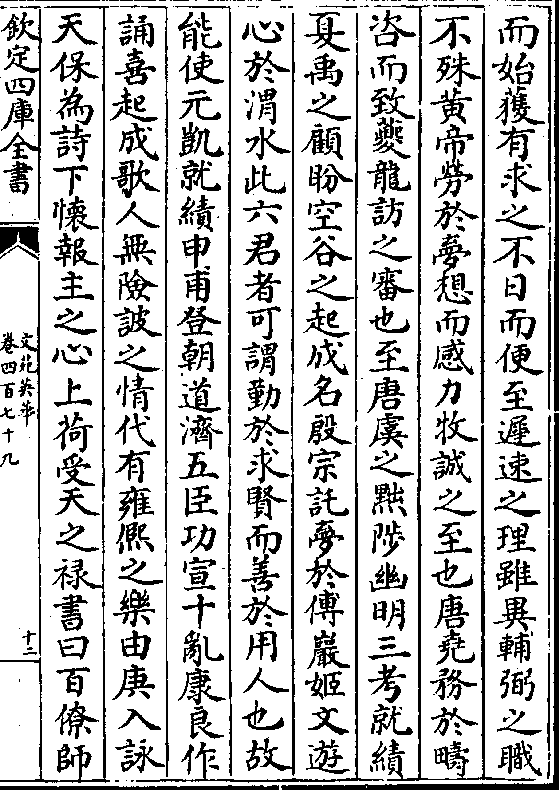 而始獲有求之不日而便至遲速之理雖異輔弼之職
不殊黄帝勞於夢想而感力牧誠之至也唐堯務於疇
咨而致夔龍訪之審也至唐虞之黜陟幽明三考就績
夏禹之顧盼空谷之起成名殷宗託夢於傅巖姬文遊
心於渭水此六君者可謂勤於求賢而善於用人也故
能使元凱就績申甫登朝道濟五臣功宣十亂康良作
誦喜起成歌人無險詖之情代有雍熙之樂由庚入詠
天保為詩下懷報主之心上荷受天之禄書曰百僚師
欽定四庫全書
文苑英華
卷四百七十九
十二